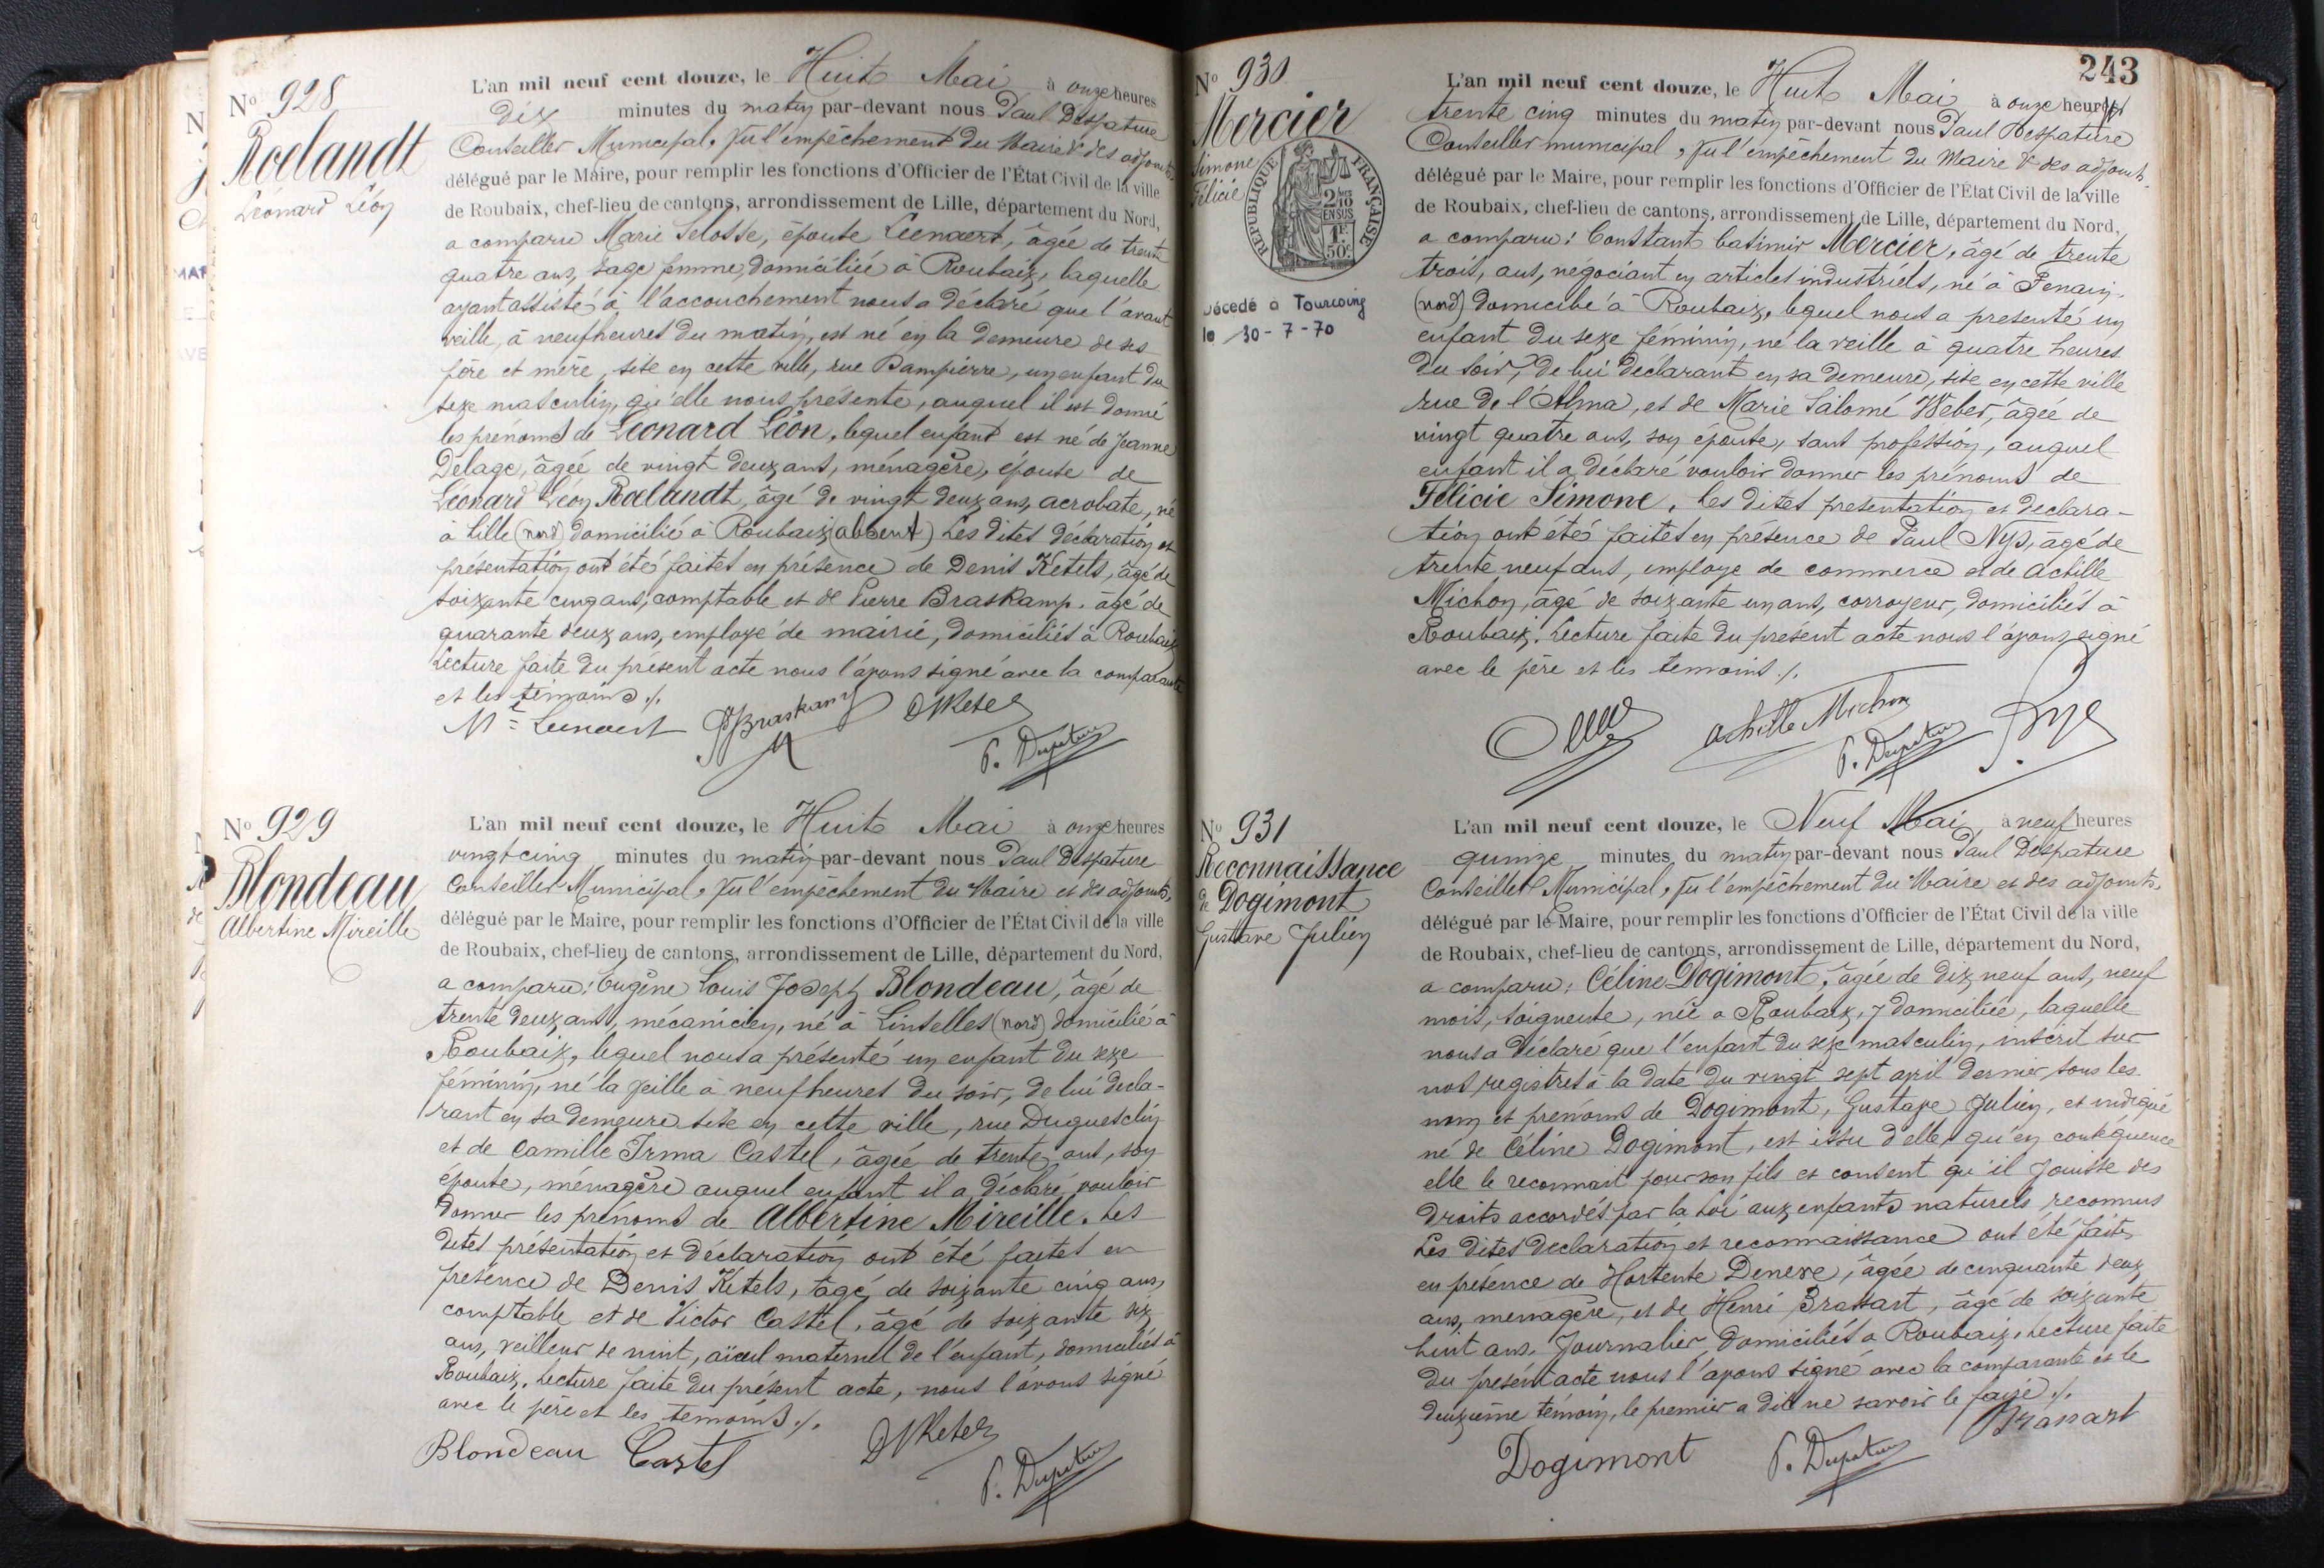 N° 928
Roelandt
Léonard Léon
L'an mil neuf cent douze, le Huit Mai à onze heures
dix minutes du matin par-devant nous Paul Despature
Conseiller Municipal, Vu l'empêchement du Maire & des adjoints,
délégué par le Maire, pour remplir les fonctions d'Officier de l'État Civil de la ville
de Roubaix, chef-lieu de cantons, arrondissement de Lille, département du Nord,
a comparu Marie Selosse, épouse Leenaert, âgée de trente
quatre ans, sage femme, domiciliée à Roubaix, laquelle
ayant assisté à l'accouchement nous a déclaré que l'avant
veille, à neuf heures du matin, est né en la demeure de ses
père et mère, sise en cette ville, rue Dampierre, un enfant du
sexe masculin, qu'elle nous présente, auquel il est donné
les prénoms de Léonard Léon, lequel enfant est né de Jeanne
Delage, âgée de vingt deux ans, ménagère, épouse de
Léonard Léon Roelandt, âgé de vingt deux ans, acrobate, né
à Lille (nord) domicilié à Roubaix (absent) Les dites déclaration et
présentation ont été faites en présence de Denis Ketels, âgé de
soixante cinq ans, comptable et de Pierre Braskamp, âgé de
quarante deux ans, employé de mairie, domiciliés à Roubaix
Lecture faite du présent acte nous l'avons signé avec la comparante
et les témoins ./.
M = Leenaert PBraskamp DKetels
P. Despature
N° 929
Blondeau
Albertine Mireille
L'an mil neuf cent douze, le Huit Mai à onze heures
vingt-cinq minutes du matin par-devant nous Paul Despature
Conseiller Municipal, Vu l'empêchement du Maire et des adjoints,
délégué par le Maire, pour remplir les fonctions d'Officier de l'État Civil de la ville
de Roubaix, chef-lieu de cantons, arrondissement de Lille, département du Nord,
a comparu: Eugène Louis Joseph Blondeau, âgé de
trente deux ans, mécanicien, né à Linselles (nord) domicilié à
Roubaix, lequel nous a présenté un enfant du sexe
féminin, né la veille à neuf heures du soir, de lui décla-
rant en sa demeure sise en cette ville, rue Duguesclin
et de Camille Irma Castel, âgée de trente ans, son
épouse, ménagère auquel enfant il a déclaré vouloir
donner les prénoms de Albertine Mireille. Les
dites présentation et déclaration ont été faites en
présence de Denis Ketels, âgé de soixante cinq ans,
comptable et de Victor Castel, âgé de soixante six
ans, veilleur de nuit, aïeul maternel de l'enfant, domiciliés à
Roubaix, Lecture faite du présent acte, nous l'avons signé
avec le père et les témoins ./.
Blondeau Castel DKetels
P. Despature
243
N° 930
Mercier
Simone
Félicie
RÉPUBLIQUE FRANÇAISE
2/10
EN SUS
1F
50c
décédé à Tourcoing
le 30-7-70
L'an mil neuf cent douze, le Huit Mai à onze heures
trente cinq minutes du matin par-devant nous Paul Despature
Conseiller municipal, Vu l'empêchement du Maire & des adjoints,
délégué par le Maire, pour remplir les fonctions d'Officier de l'État Civil de la ville
de Roubaix, chef-lieu de cantons, arrondissement de Lille, département du Nord,
a comparu: Constant Casimir Mercier, âgé de trente
trois, ans, négociant en articles industriels, né à Fenain,
(nord) domicilié à Roubaix, lequel nous a présenté un
enfant du sexe féminin, né la veille à quatre heures
du soir, de lui déclarant en sa demeure, sise en cette ville
rue de l'Alma, et de Marie Salomé Weber, âgée de
vingt quatre ans, son épouse, sans profession, auquel
enfant il a déclaré vouloir donner les prénoms de
Félicie Simone, les dites présentation et déclara-
tion ont étés faites en présence de Paul Nys, âgé de
trente neuf ans, employe de commerce et de Achille
Michon, âgé de soixante un ans, corroyeur, domiciliés à
Roubaix. Lecture faite du présent acte nous l'avons signé
avec le père et les temoins ./.
Achille Michon
P. Despature
N° 931
Reconnaissance
de Dogimont
Gustave Julien
L'an mil neuf cent douze, le Neuf Mai à neuf heures
quinze minutes du matin par-devant nous Paul Despature
Conseiller Municipal, Vu l'empêchement du Maire et des adjoints,
délégué par le Maire, pour remplir les fonctions d'Officier de l'État Civil de la ville
de Roubaix, chef-lieu de cantons, arrondissement de Lille, département du Nord,
a comparu: Céline Dogimont, âgée de dix neuf ans, neuf
mois, soigneuse, née a Roubaix, y domiciliée, laquelle
nous a déclaré que l'enfant du sexe masculin, inscrit sur
nos registres à la date du vingt sept avril dernier, sous les
nom et prénoms de Dogimont, Gustave Julien, et indiqué
né de Céline Dogimont, est issu d'elle, qu'en conséquence
elle le reconnait pour son fils et consent qu'il jouisse des
droits accordés par la loi aux enfants naturels reconnus
Les dites déclaration et reconnaissance ont été faites
en présence de Hortense Deneve, âgée de cinquante deux
ans, menagère, et de Henri Brassart, âgé de soixante
huit ans, Journalier, domiciliés a Roubaix, Lecture faite
du présent acte nous l'avons signé avec la comparante et le
deuxième témoin, le premier a dit ne savoir le faire ./.
Dogimont P. Despature Brassart